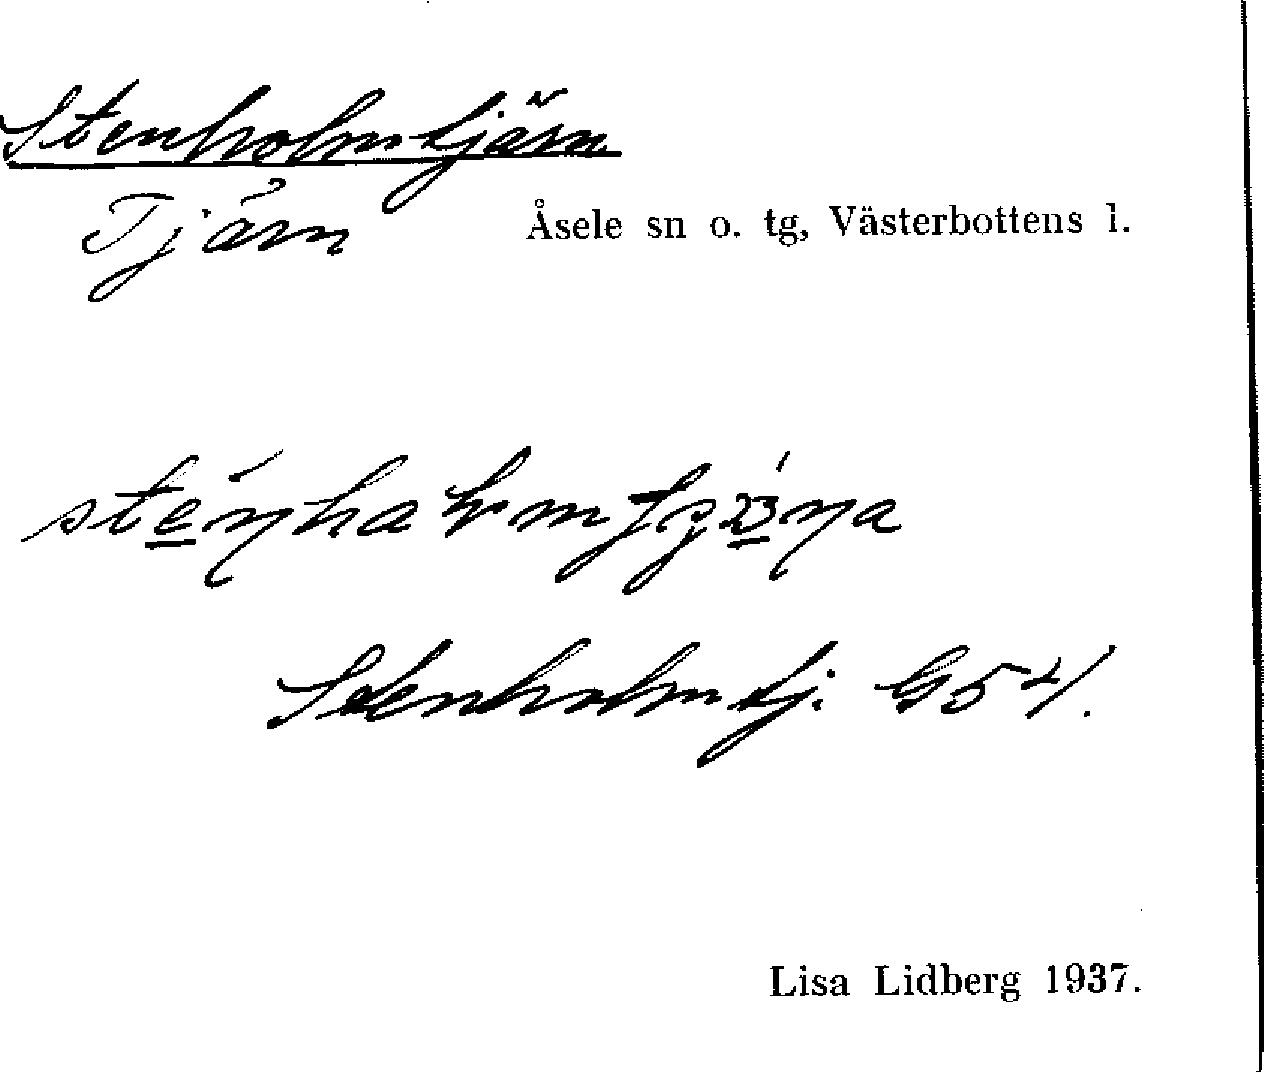 Stenholmtjärn
Tjärn Åsele sn o. tg, Västerbottens l.
Stenholmtj. G54.
Lisa Lidberg 1937.